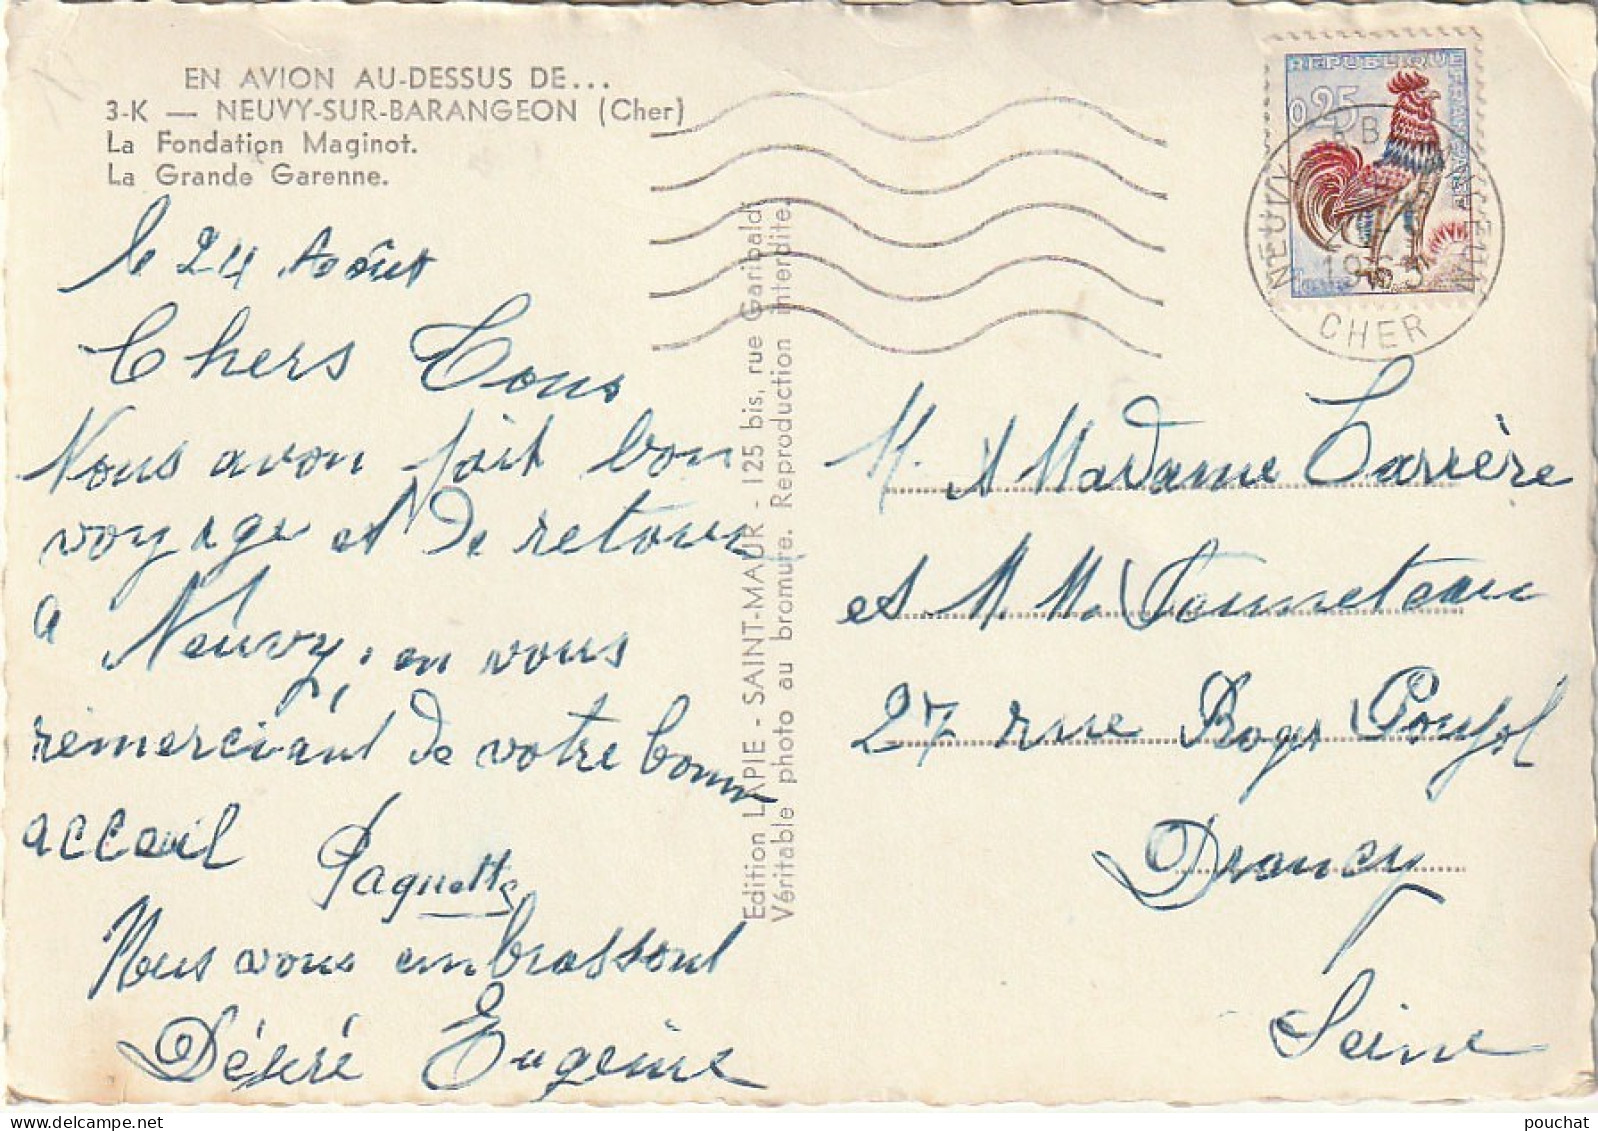 EN AVION AU-DESSUS DE...
3-K — NEUVY-SUR-BARANGEON (Cher)
La Fondation Maginot.
La Grande Garenne.
le 24 Août
Chers Tous
Nous avon fait bon
voyage et de retour
a Neuvy, en vous
remerciant de votre bonne
acceuil
Paquette
Nous vous embrassont
Désiré Eugénie
Edition LAPIE - SAINT-MAUR - 125 bis, rue Garibaldi
Véritable photo au bromure. Reproduction interdite.
REPUBLIQUE FRANÇAISE
0,25
NEUVY
1963
CHER
M. & Madame Carrière
et M. Mme Fonneteau
27 rue Roger Poujol
Drancy
Seine
pouchat